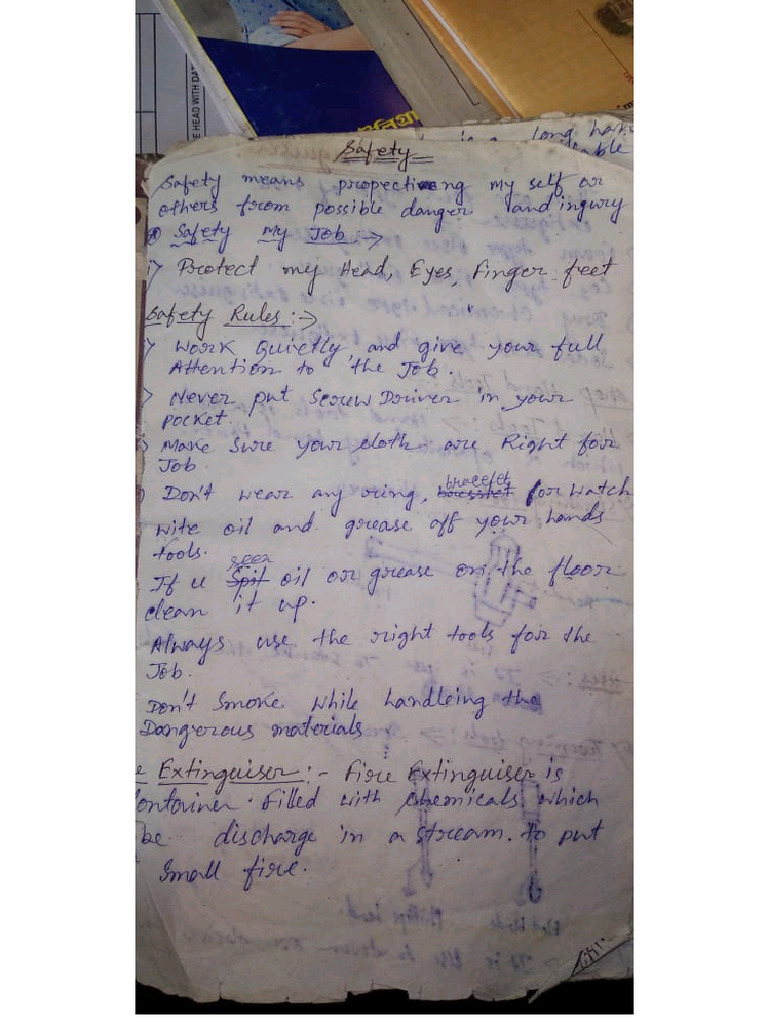 E HEAD WITH DAT
long hand
able
Safety
Safety means propecting my self or
others from possible danger and ingury
Safety my Job :->
i> Protect my Head, Eyes, Finger feet
Safety Rules :->
> Work Quietly and give your full
Attention to the Job.
> Never put Screw Driver in your
pocket.
> Make Sure your cloth are Right for
Job
> Don't wear any ring, bracelet for watch
Wite oil and grease off your hands
tools.
If u seen oil or grease on the floor
clean it up.
Always use the right tools for the
Job.
Don't Smoke while handleing the
Dangerous materials
e Extinguiser :- Fire Extinguiser is
ontainer. Filled with chemicals which
be discharge in a stream. to put
Small fire.